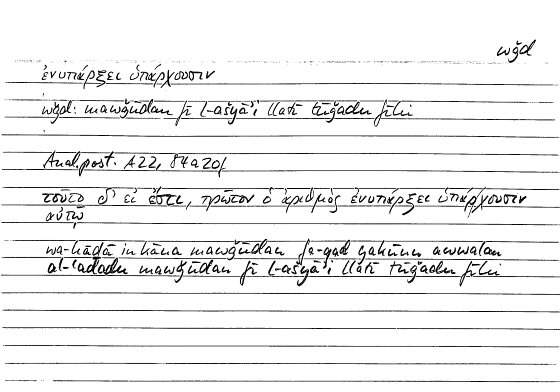 wǧd
ἐνυπάρξει ὑπάρχουσιν
wǧd: mawǧūdan fī l-ašyāʾi llatī tūǧadu fīhi
Anal. post. A22, 84a20f
τοῦτο δ' εἰ ἔστι, πρῶτον ὁ ἀριθμὸς ἐνυπάρξει ὑπάρχουσιν
αὐτῷ
wa-hāḏā in kāna mawǧūdan fa-qad yakūnu awwalan
al-ʿadadu mawǧūdan fī l-ašyāʾi llatī tūǧadu fīhi